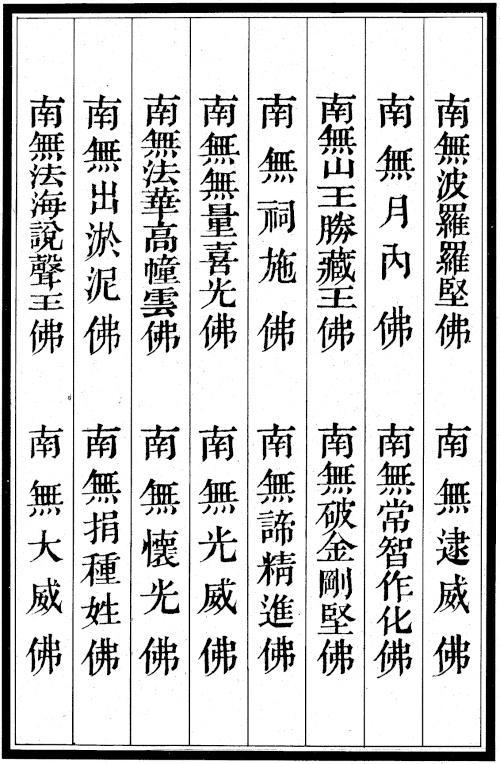 南無波羅羅堅佛　南無逮威佛
南無月內佛　南無常智作化佛
南無山王勝藏王佛　南無破金剛堅佛
南無祠施佛　南無諦精進佛
南無無量喜光佛　南無光威佛
南無法華高幢雲佛　南無懷光佛
南無出淤泥佛　南無捐種姓佛
南無法海說聲王佛　南無大威佛